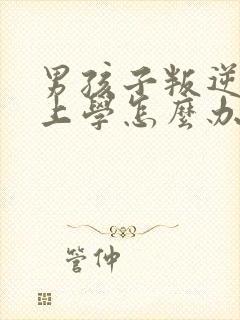 男孩子叛逆
上學怎麼办
管仲